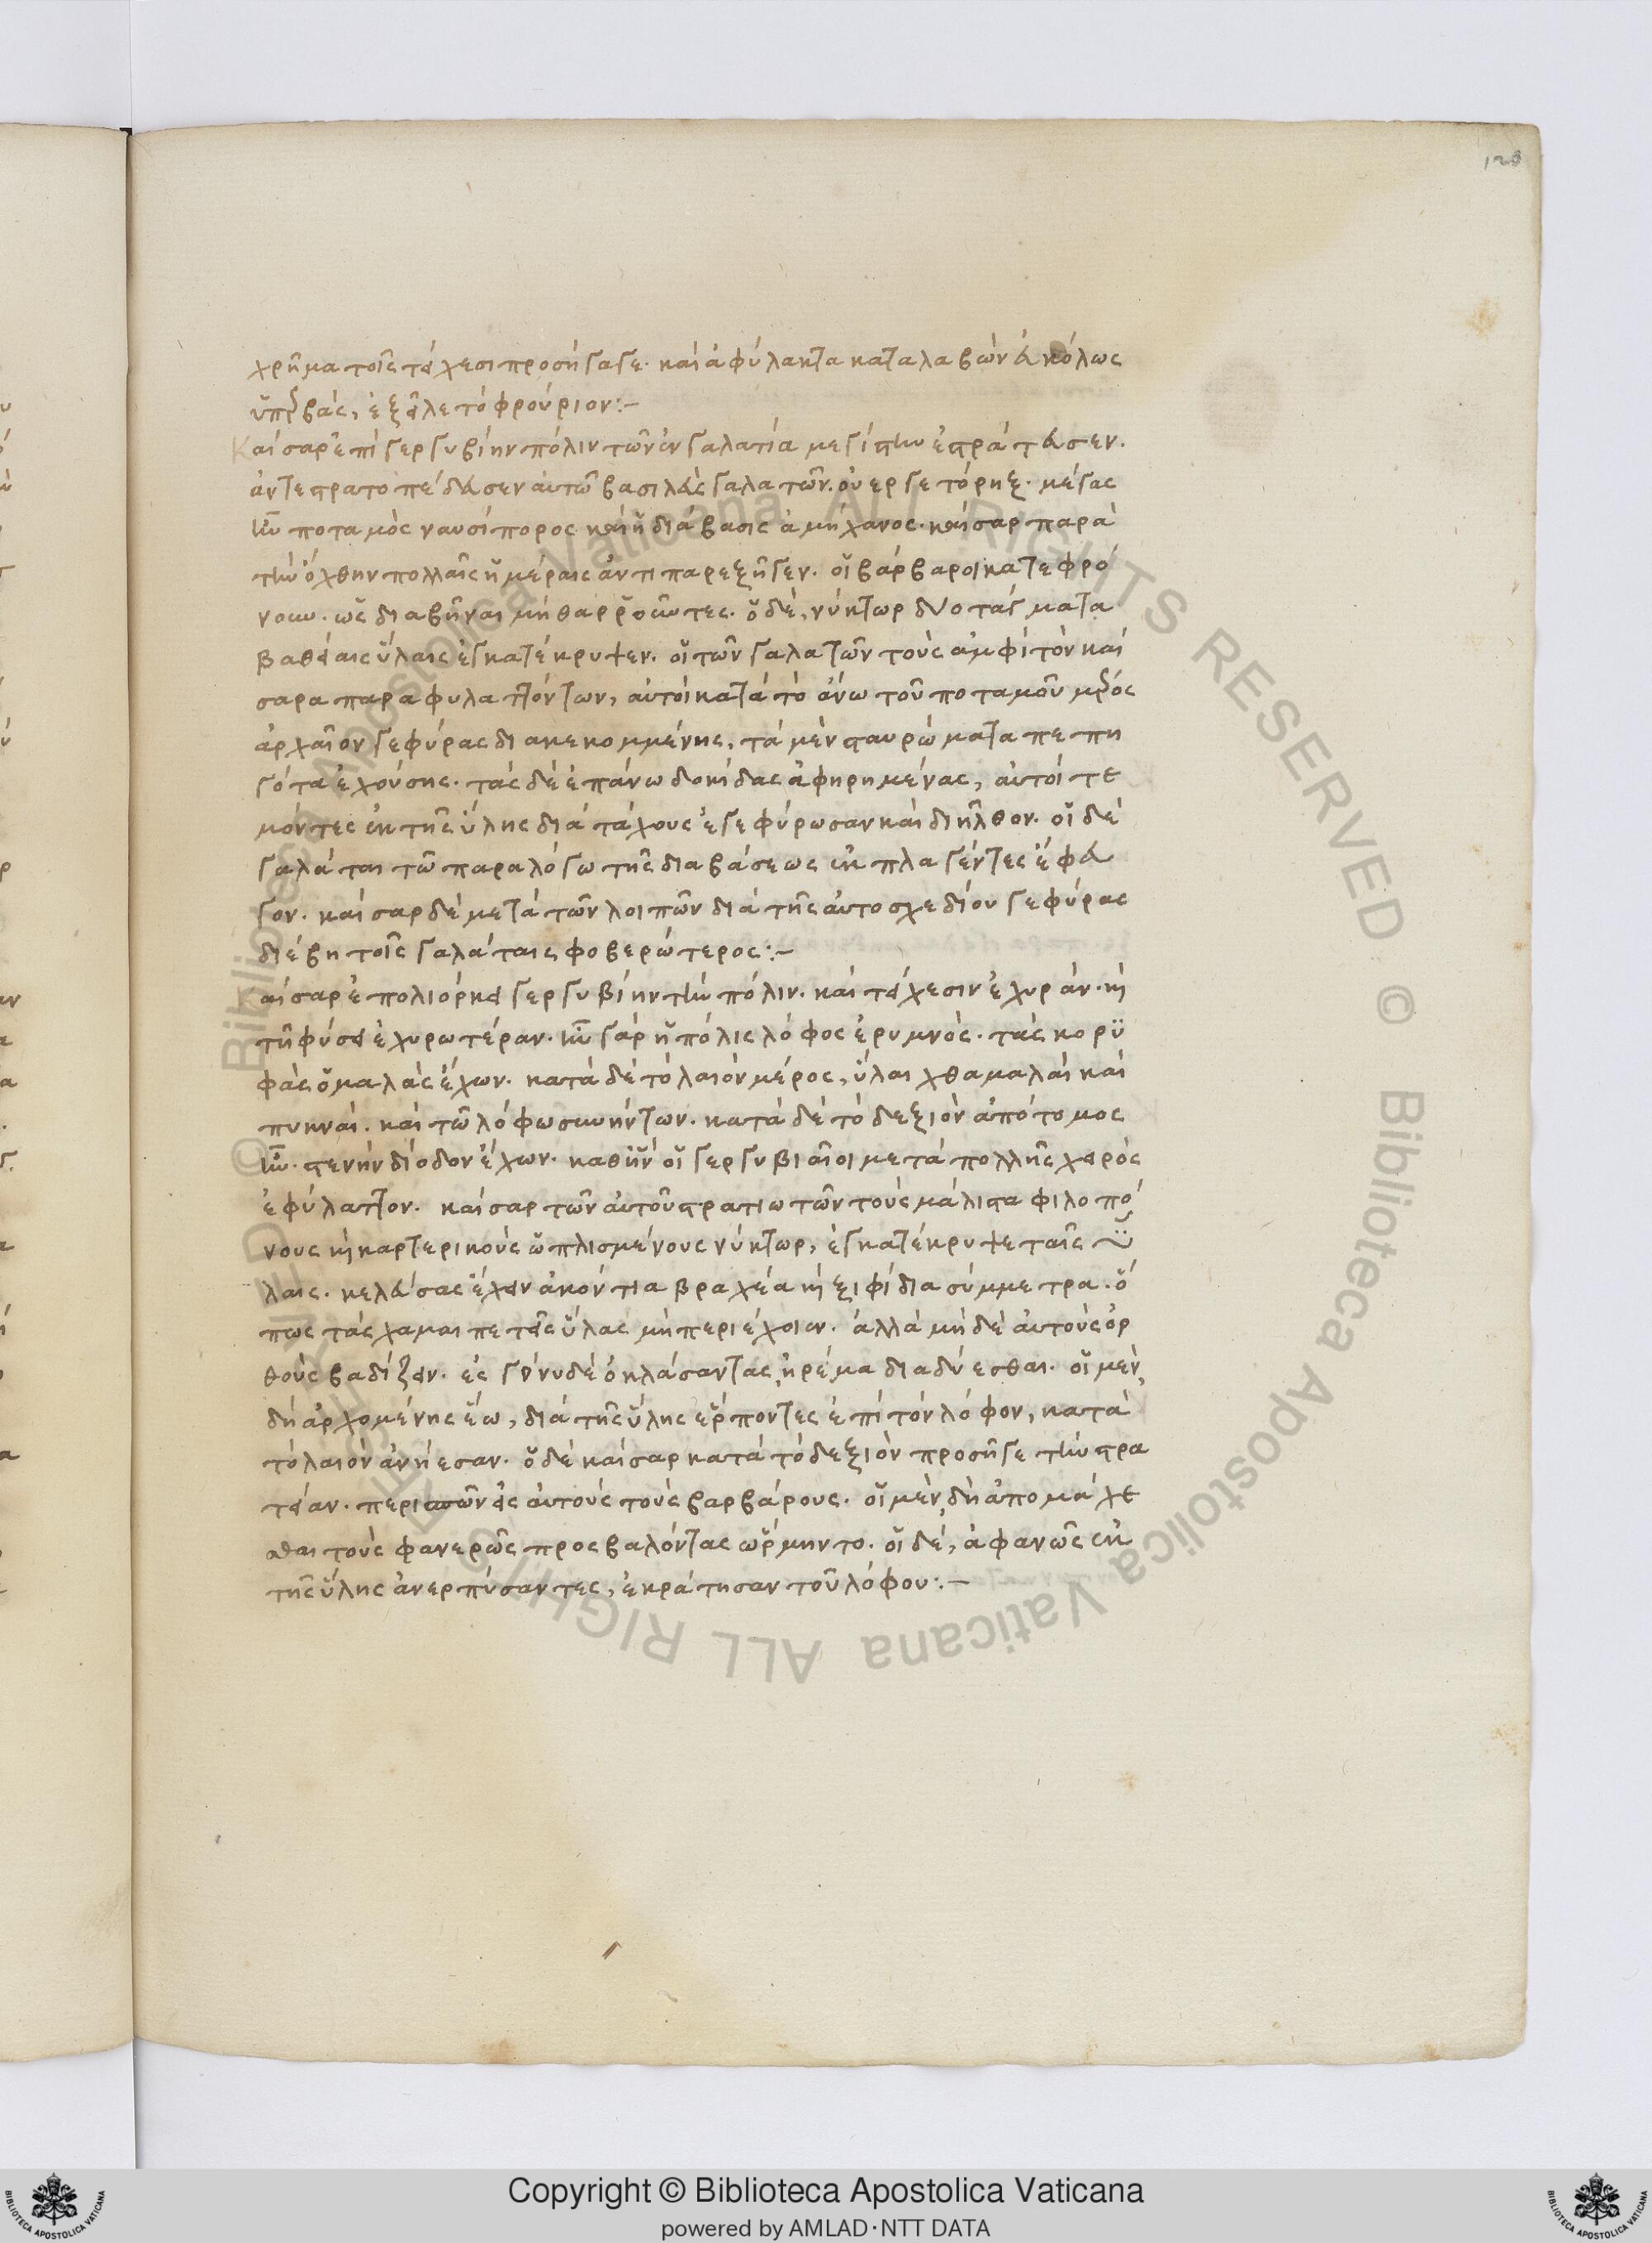 128
χρῆμα τοῖς τείχεσι προσήγαγε· καὶ ἀφύλακτα καταλαβὼν εὐκόλως
ὑπερβὰς, ἐξεῖλε τὸ φρούριον:-
Καῖσαρ ἐπὶ γεργυβίην πόλιν τῶν ἐν γαλατία μεγίστην ἐστράτευσεν.
ἀντεστρατοπέδευσεν αὐτῶ βασιλεὺς γαλατῶν. οὐεργετόρηξ. μέγας
ἦν ποταμὸς ναυσίπορος καὶ ἡ διάβασις ἀμήχανος. καῖσαρ παρὰ
τὴν ὄχθην πολλαῖς ἡμέραις ἀντιπαρεξῆγεν. οἱ βάρβαροι κατεφρό
νουν. ὡς διαβῆναι μὴ θαρροῦντες. ὁ δὲ, νύκτωρ δύο τάγματα
βαθείαις ὕλαις ἐγκατέκρυψεν. οἱ τῶν γαλατῶν τοὺς ἀμφὶ τὸν καί
σαρα παραφυλαττόντων, αὐτοὶ κατὰ τὸ ἄνω τοῦ ποταμοῦ μέρος
ἀρχαῖον γεφύρας διακεκομμένης, τὰ μὲν σταυρώματα πεπη
γότα ἐχούσης. τὰς δὲ ἐπάνω δοκίδας ἀφηρημένας, αὐτοὶ τε
μόντες ἐκ τῆς ὕλης διὰ τάχους ἐγεφύρωσαν καὶ διῆλθον. οἱ δὲ
γαλάται τῶ παραλόγω τῆς διαβάσεως ἐκπλαγέντες ἔφευ
γον. καῖσαρ δὲ μετὰ τῶν λοιπῶν διὰ τῆς αὐτοσχεδίου γεφύρας
διέβη τοῖς γαλάταις φοβερώτερος:-
Καῖσαρ ἐπολιόρκει γεργυβίην τὴν πόλιν. καὶ τείχεσιν ἐχυρὰν. καὶ
τῆ φύσει ἐχυρωτέραν. ἦν γὰρ ἡ πόλις λόφος ἐρυμνὸς. τὰς κορϋ
φὰς ὁμαλὰς ἔχων. κατὰ δὲ τὸ λαιὸν μέρος, ὕλαι χθαμαλαὶ καὶ
πυκναί. καὶ τῶ λόφω συνήντων. κατὰ δὲ τὸ δεξιὸν ἀπότομος
ἦν. στενὴν δίοδον ἔχων. καθ' ἣν οἱ γεργυβιαῖοι μετὰ πολλῆς χειρὸς
ἐφύλαττον. καῖσαρ τῶν αὐτοῦ στρατιωτῶν τοὺς μάλιστα φιλοπό
νους καὶ καρτερικοὺς ὡπλισμένους νύκτωρ, ἐγκατέκρυψε ταῖς ὕ
λαις. κελεύσας ἔχειν ἀκόντια βραχέα καὶ ξιφίδια σύμμετρα. ὅ
πως τὰς χαμαιπετεῖς ὕλας μὴ περιέχοιεν. ἀλλὰ μὴ δὲ αὐτοὺς ὀρ
θοὺς βαδίζειν. ἐς γόνυ δὲ ὀκλάσαντας, ἠρέμα διαδύεσθαι. οἱ μὲν
δὴ ἀρχομένης ἕω, διὰ τῆς ὕλης ἕρποντες ἐπὶ τὸν λόφον, κατὰ
τὸ λαιὸν ἀνήεσαν. ὁ δὲ καῖσαρ κατὰ τὸ δεξιὸν προσῆγε τὴν στρα
τείαν. περισπῶν εἰς αὐτοὺς τοὺς βαρβάρους. οἱ μὲν δὴ ἀπομάχε
σθαι τοὺς φανερῶς προσβαλόντας ὥρμηντο. οἱ δὲ, ἀφανῶς ἐκ
τῆς ὕλης ἀνερπύσαντες, ἐκράτησαν τοῦ λόφου:-
© Biblioteca Apostolica Vaticana ALL RIGHTS RESERVED © Biblioteca Apostolica Vaticana ALL RIGHTS RESERVED
Copyright © Biblioteca Apostolica Vaticana
powered by AMLAD·NTT DATA
BIBLIOTECA APOSTOLICA VATICANA
BIBLIOTECA APOSTOLICA VATICANA